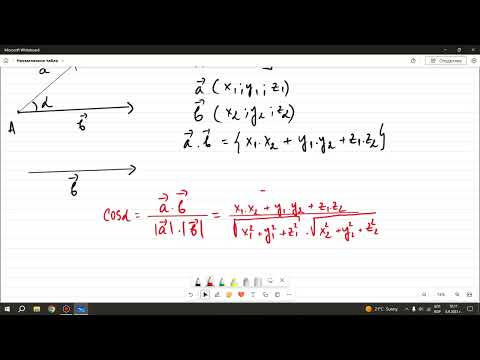 Microsoft Whiteboard
Неозаглавено табло
Споделяне
a
α
A
b⃗
b⃗
a⃗ ( x₁; y₁; z₁)
b⃗ ( x₂; y₂; z₂)
a⃗ . b⃗ = {x₁.x₂ + y₁.y₂ + z₁.z₂}
cosα = a⃗.b⃗ / |a⃗|.|b⃗| = x₁.x₂ + y₁.y₂ + z₁.z₂ / √x₁²+y₁²+z₁² . √x₂²+y₂²+z₂²
74%
21°C Sunny